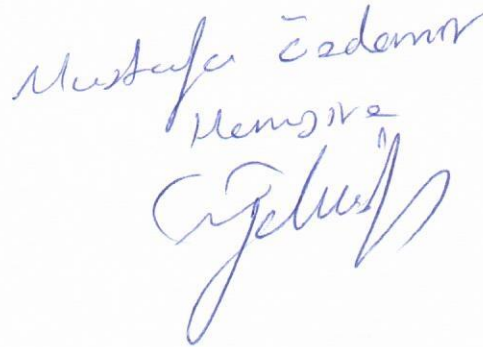 Mustafa Özdemir
Hemşire